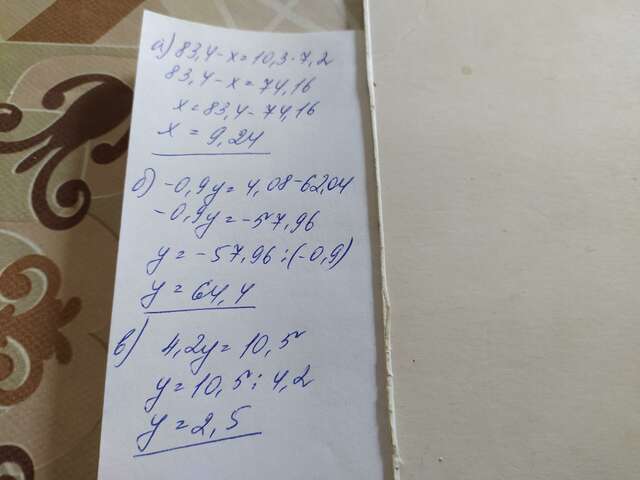 а) 83,4-х=10,3·7,2
83,4-х=74,16
х=83,4-74,16
х=9,24
б) -0,9у=4,08-62,04
-0,9у=-57,96
у=-57,96:(-0,9)
у=64,4
в) 4,2у=10,5
у=10,5:4,2
у=2,5